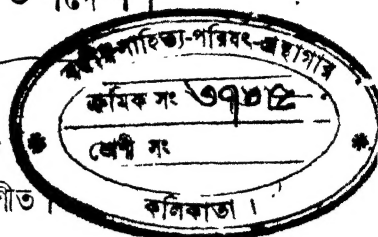 বঙ্গীয়-সাহিত্য-পরিষৎ-গ্রন্থাগার
ক্রমিক সং ৩৭৮৫
শ্রেণী সং
ণীত
কলিকাতা ।